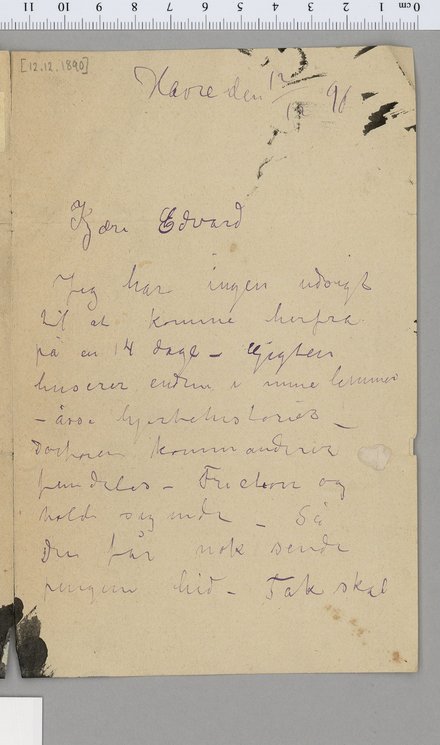 11 10 9 8 7 6 5 4 3 2 1 0 cm
[12.12.1890]
Havre den 12/12 90
Kjære Edvard
Jeg har ingen udsigt
til at komme herfra
på en 14 dage – Gigten
huserer endnu i mine lemmer
– også hjertehistorier –
Doctoren kommanderer
fremdeles – Friction og
holde sig inde – Så
Du får nok sende
pengene hid – Tak skal